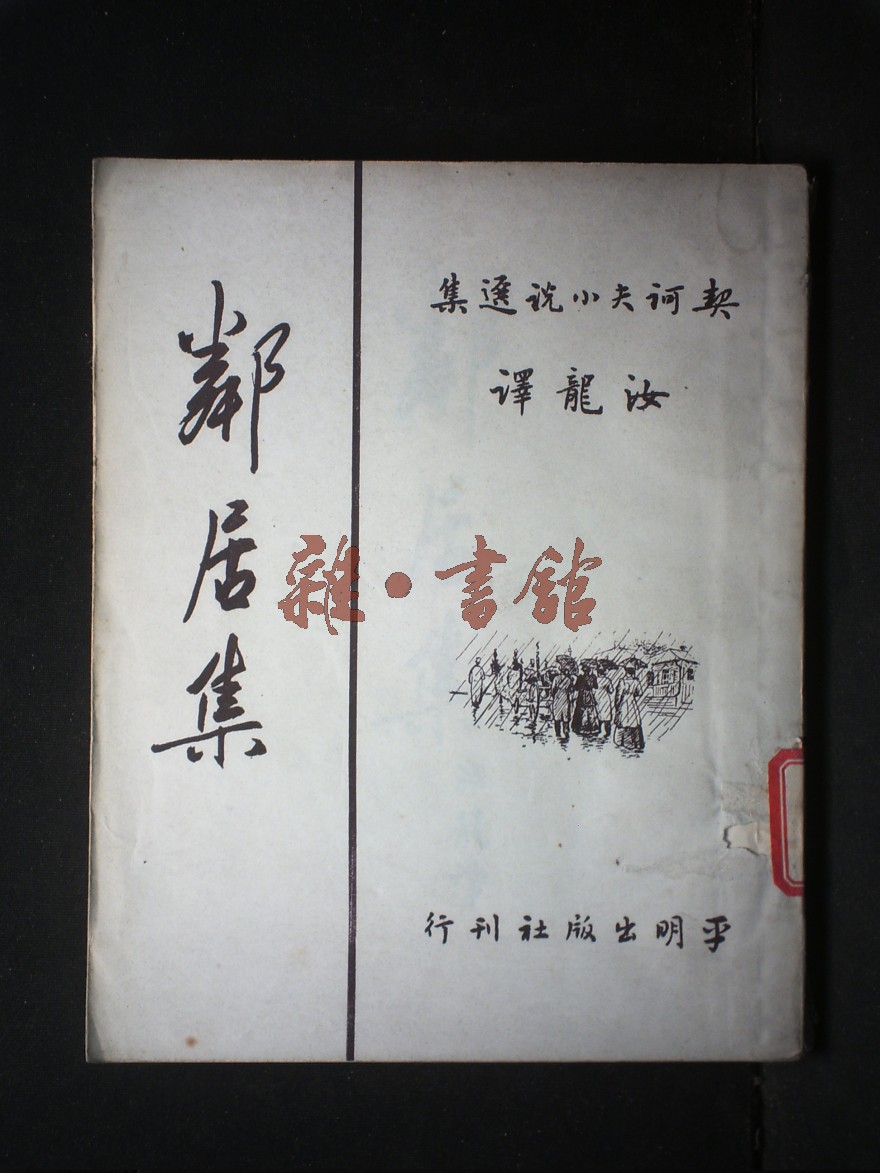 契訶夫小说選集
汝龍譯
鄰居集
雜·書館
平明出版社刊行